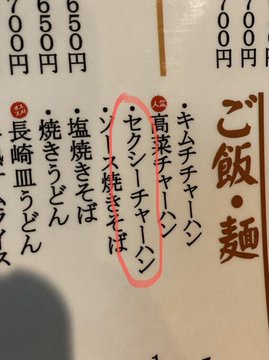 ご飯・麺
・キムチチャーハン
人気
・高菜チャーハン
・セクシーチャーハン
・ソース焼きそば
・塩焼きそば
・焼きうどん
オススメ
・長崎皿うどん
700円
650円
650円
700円